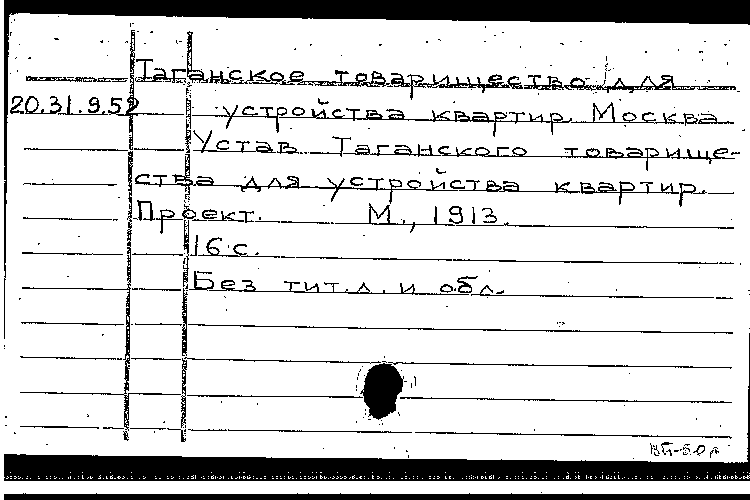 Таганское товарищество для
20.31.9.52 устройства квартир. Москва
Устав Таганского товарище-
ства для устройства квартир.
Проект. М., 1913.
16 с.
Без тит.л. и обл.